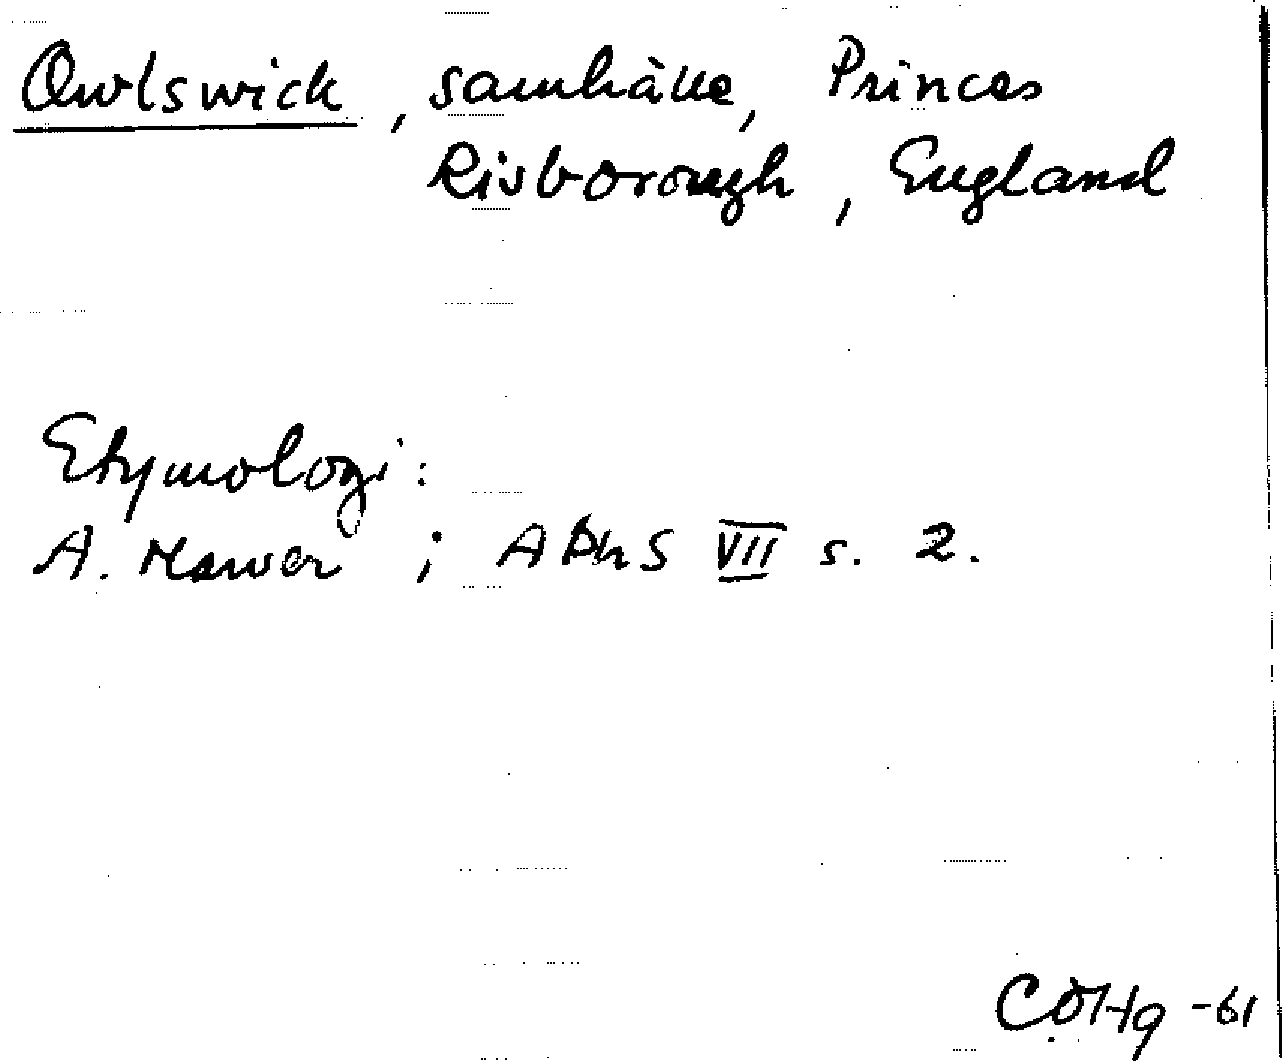 Owlswick, samhälle, Princes
Risborough, England
Etymologi:
A. Mawer; APhS VII s. 2.
CÖHg -61